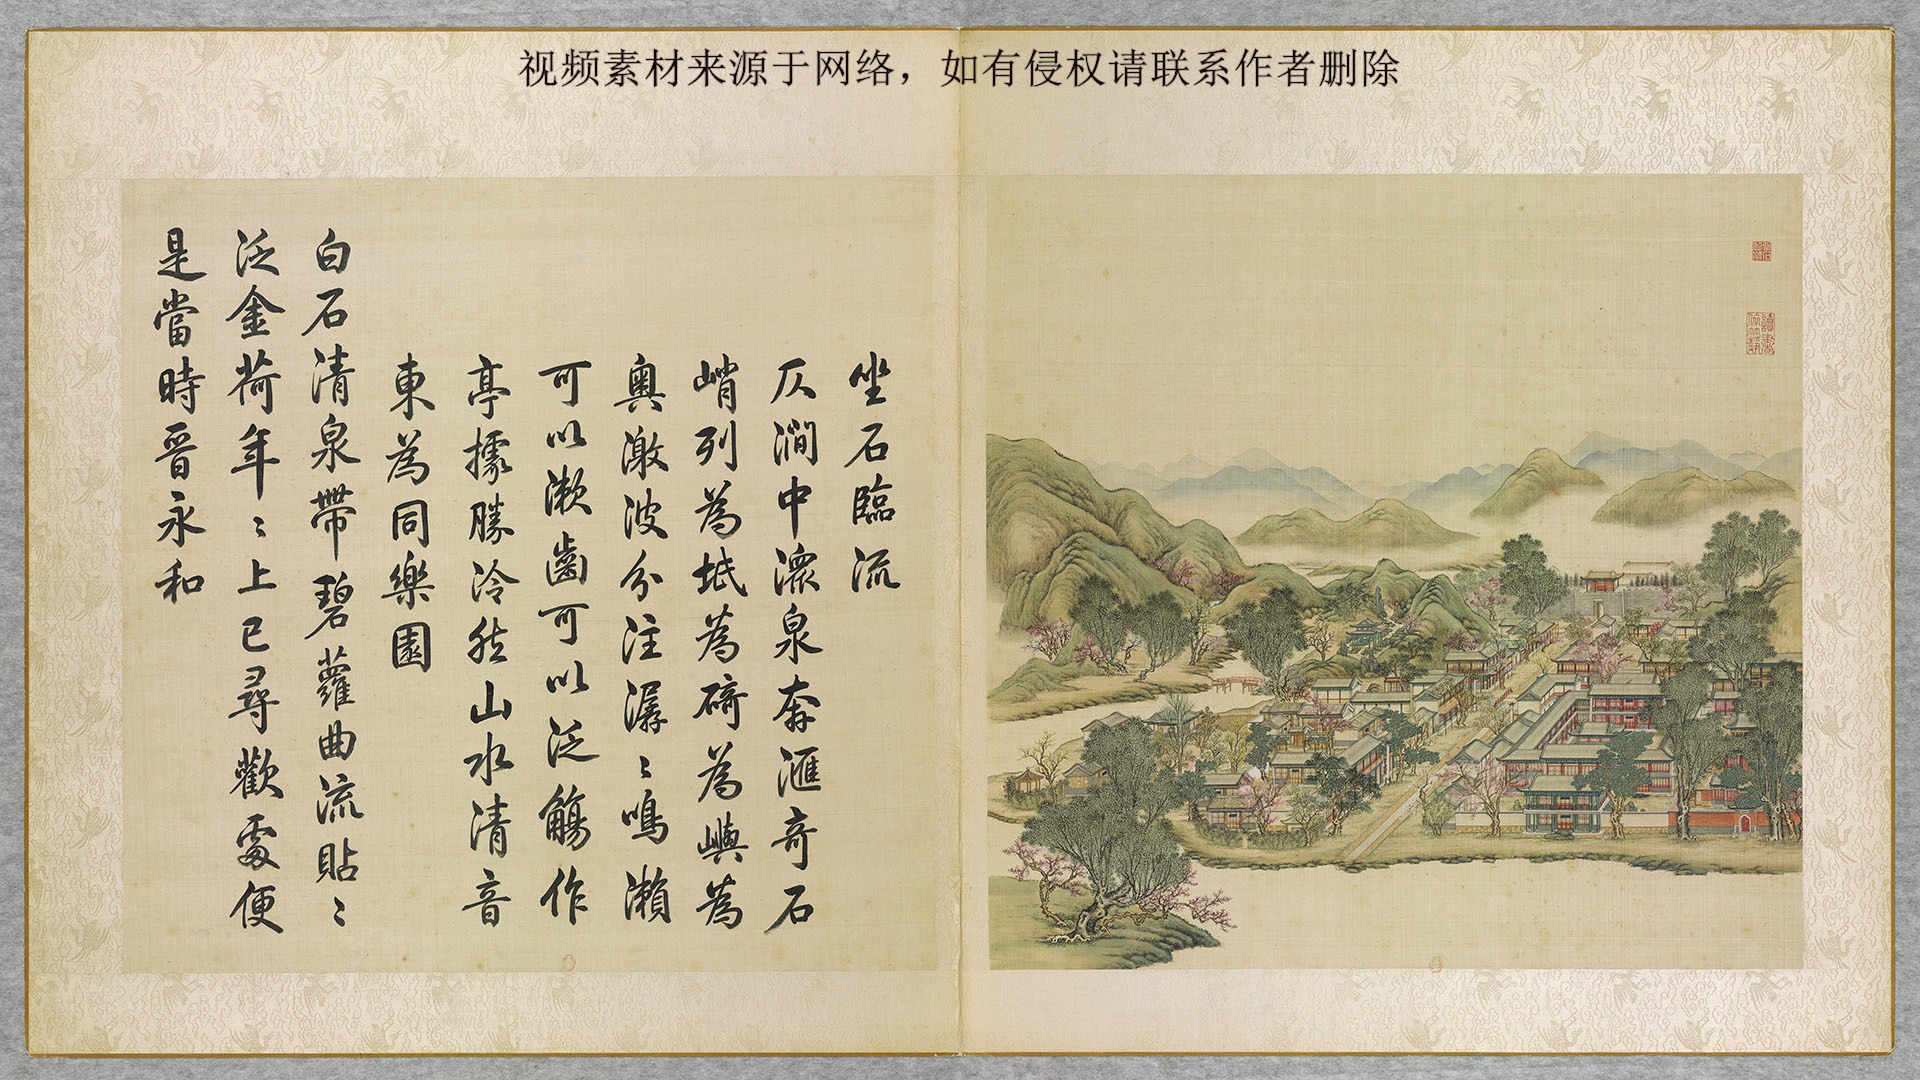 视频素材来源于网络，如有侵权请联系作者删除
坐石臨流
仄澗中瀠泉奔滙奇石
峭列為坻為碕為嶼為
奧激波分注潺〻鳴瀨
可以漱齒可以泛觴作
亭據勝泠然山水清音
東為同樂園
白石清泉帶碧蘿曲流貼〻
泛金荷年〻上巳尋歡處便
是當時晉永和